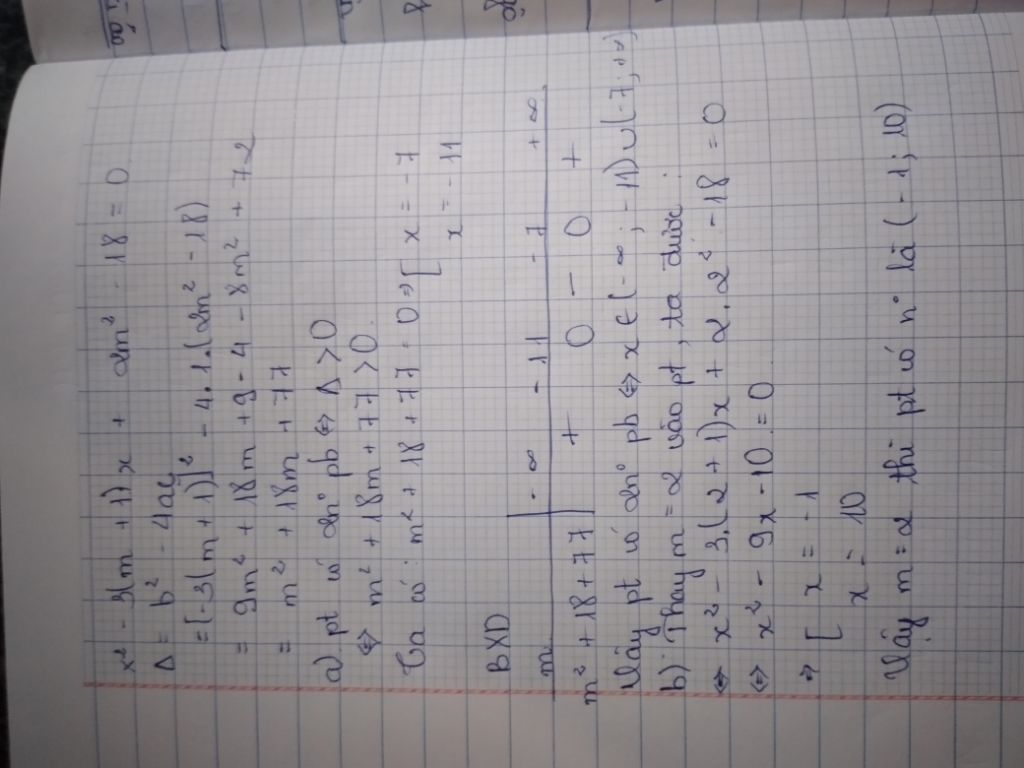 x² - 3(m + 1)x + 2m² - 18 = 0
Δ = b² - 4ac
= [-3(m + 1)]² - 4.1.(2m² - 18)
= 9m² + 18m + 9 - 4 - 8m² + 72
= m² + 18m + 77
a) pt có 2n° pb ⇔ Δ > 0
⇔ m² + 18m + 77 > 0
Ta có: m² + 18 + 77 = 0 ⇒ [ x = -7
x = -11
BXD
m - ∞ - 11 - 7 + ∞
m² + 18 + 77 + 0 - 0 +
Vậy pt có 2n° pb ⇔ x ∈ (-∞; -11) ∪ (-7; +∞)
b) Thay m = 2 vào pt, ta được:
⇔ x² - 3.(2 + 1)x + 2.2² - 18 = 0
⇔ x² - 9x - 10 = 0
⇒ [ x = -1
x = 10
Vậy m = 2 thì pt có n° là (-1; 10)